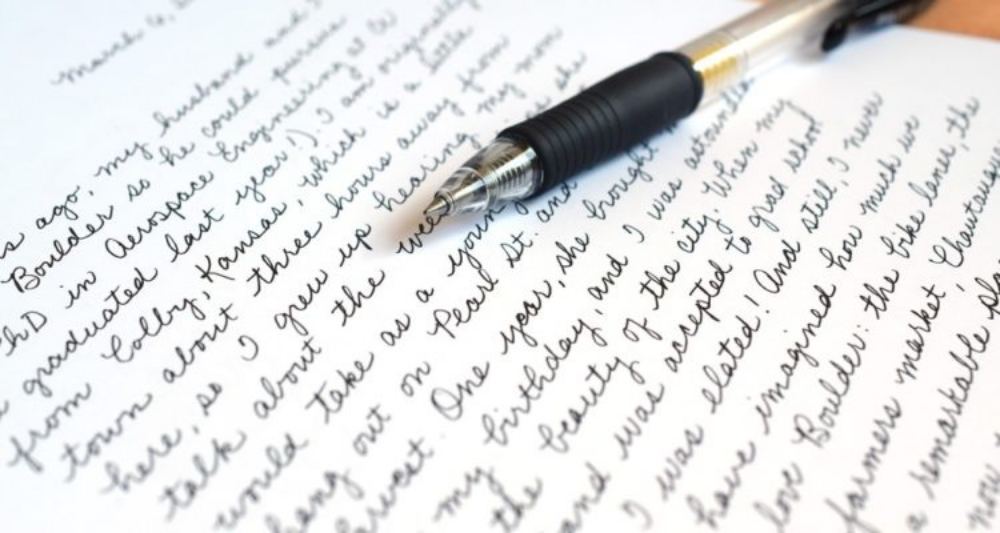 March 6,
ago, my husband and
Boulder so he could pursue
PhD in Aerospace Engineering at CU
graduated last year!). I am originally
from Colby, Kansas, which is a little
town about three hours away from
here, so I grew up hearing my mom
talk about the she
would take as a young
hang out on Pearl St. and
One year, she brought
my birthday, and I was
the beauty of the city. When my
and I was accepted to grad school
I was elated! And still, I never
have imagined how much we
love Boulder: the bike lanes, the
farmers market, Chautauqu
a remarkable pla
now